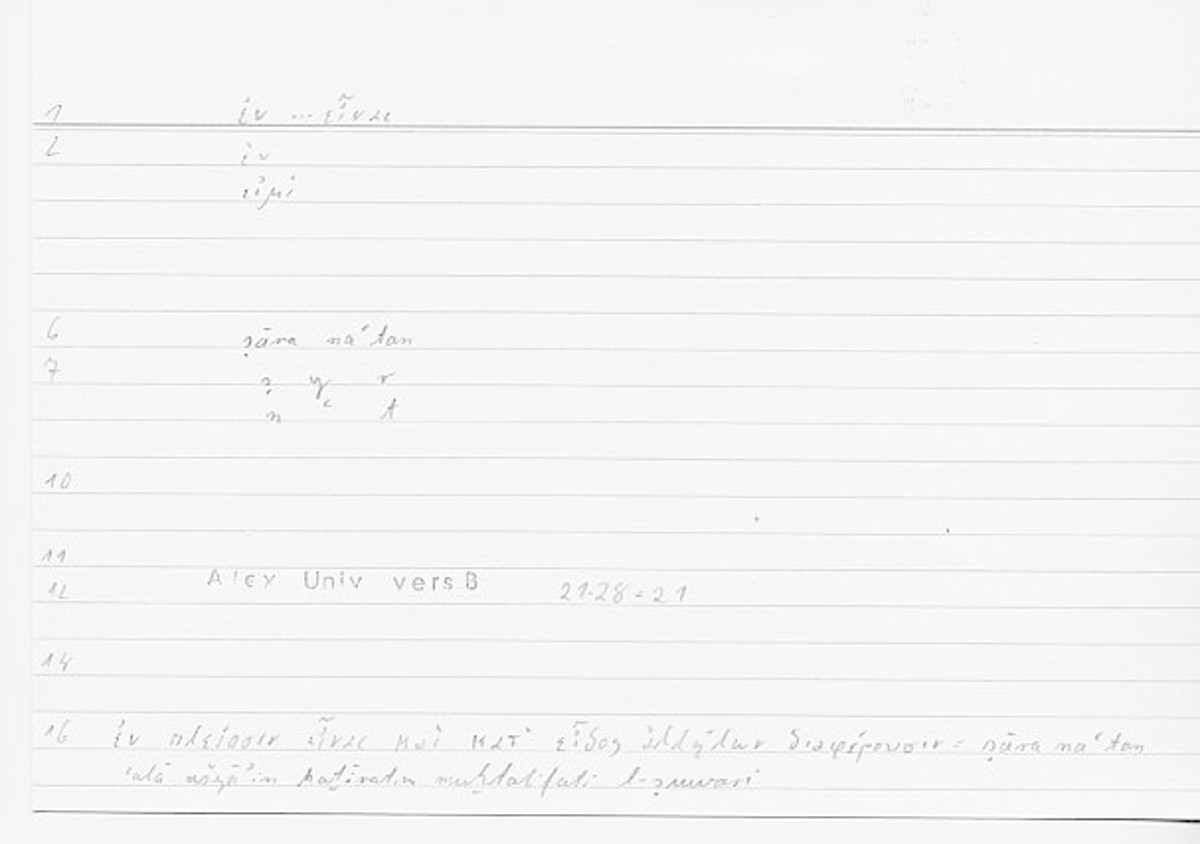 1 ἐν ... εἶναι
2 ἐν
εἰμί
6 ṣāra naʿtan
7 ṣ y r
n ʿ t
10
11
12 Alex Univ vers B 21.28 = 21
14
16 ἐν πλείοσιν εἶναι καὶ κατ' εἶδος ἀλλήλων διαφέρουσιν: ṣāra naʿtan
ʿalā ašyāʾin kaṯīratin muḫtalifati l-ṣuwari